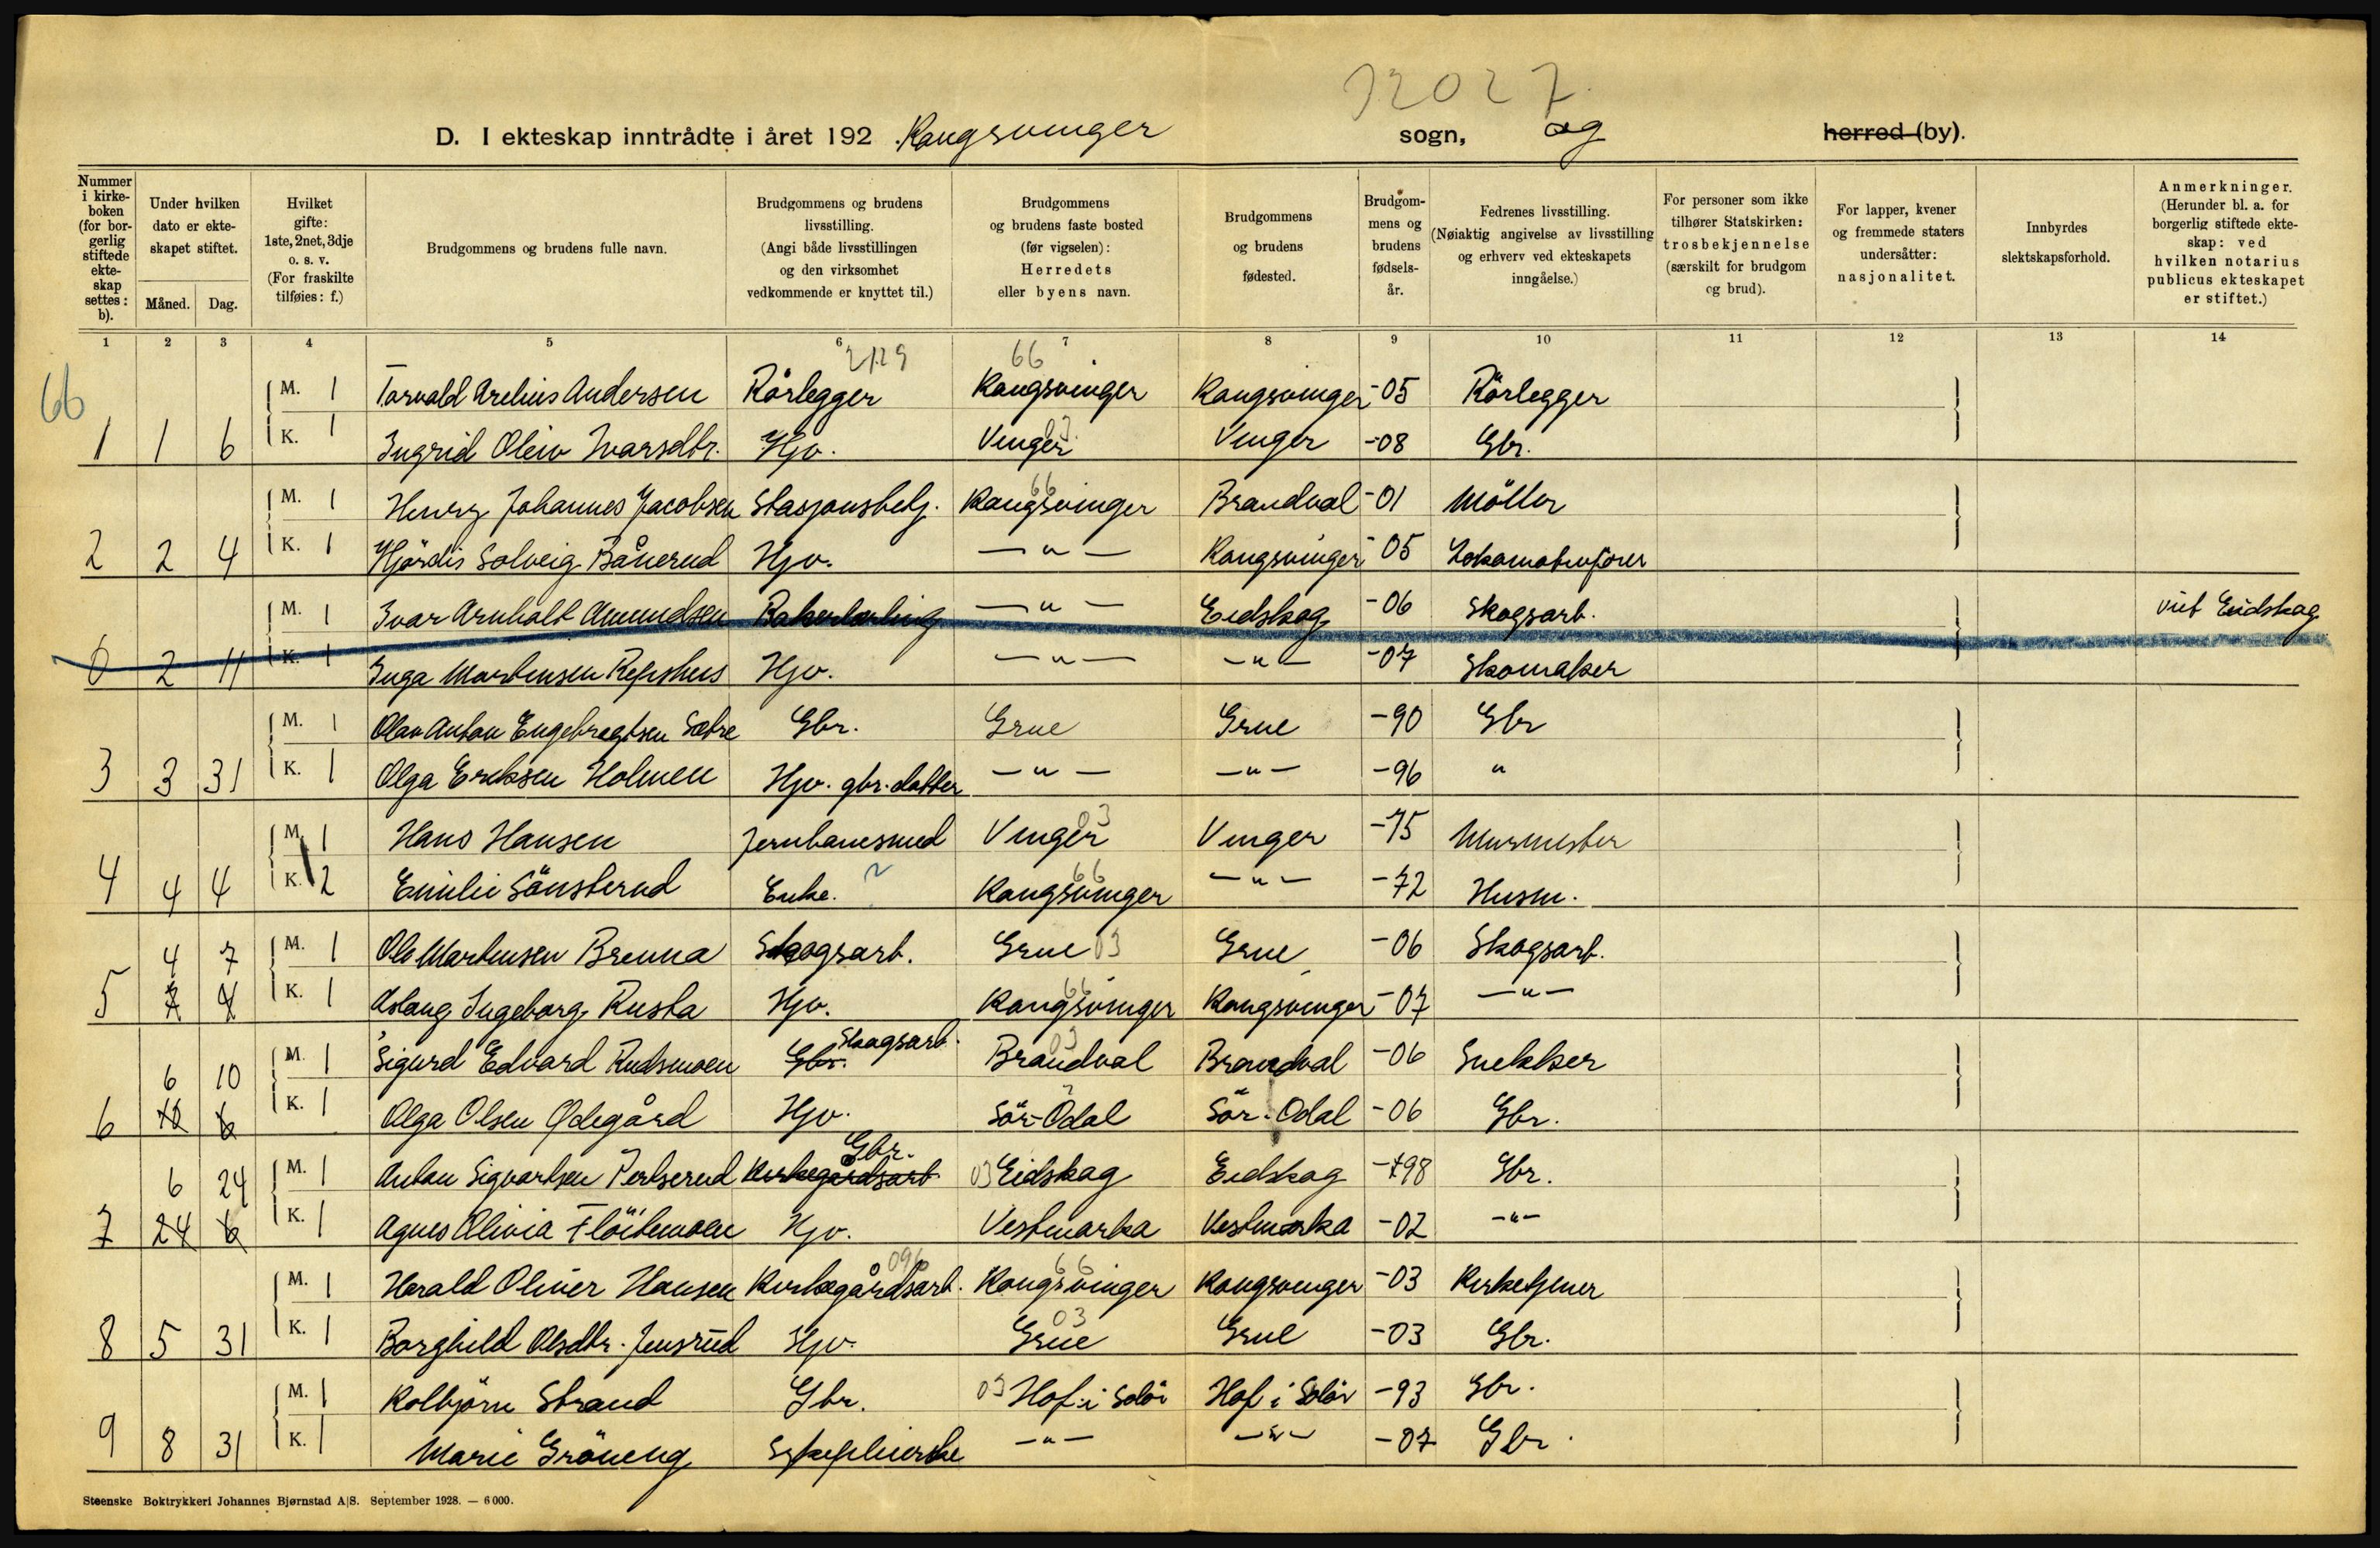 12027
D. I ekteskap inntrådte i året 192 . Kongsvinger sogn, og herred (by).
Nummer i kirkeboken (for borgerlig stiftede ekteskap settes: b).
Under hvilken dato er ekteskapet stiftet.
Måned. Dag.
Hvilket gifte: 1ste, 2net, 3dje o. s. v. (For fraskilte tilføies: f.)
Brudgommens og brudens fulle navn.
Brudgommens og brudens livsstilling. (Angi både livsstillingen og den virksomhet vedkommende er knyttet til.)
Brudgommens og brudens faste bosted (før vigselen): Herredets eller byens navn.
Brudgommens og brudens fødested.
Brudgommens og brudens fødselsår.
Fedrenes livsstilling. (Nøiaktig angivelse av livsstilling og erhverv ved ekteskapets inngåelse.)
For personer som ikke tilhører Statskirken: trosbekjennelse (særskilt for brudgom og brud).
For lapper, kvener og fremmede staters undersåtter: nasjonalitet.
Innbyrdes slektskapsforhold.
Anmerkninger. (Herunder bl. a. for borgerlig stiftede ekteskap: ved hvilken notarius publicus ekteskapet er stiftet.)
1 2 3 4 5 6 7 8 9 10 11 12 13 14
66 2129 66
M. 1 Torvald Arelius Andersen Rörlegger Kongsvinger Kongsvinger -05 Rörlegger
1 1 6 K. 1 Ingrid Oleiv Ivarsdtr. Hjv. Vinger 03 Vinger -08 Gbr.
M. 1 Henry Johannes Jacobsen Stasjonsbetj. Kongsvinger 66 Brandval -01 Möller
2 2 4 K. 1 Hjördis Solveig Bånerud Hjv. —„— Kongsvinger -05 Lokomotivförer
M. 1 Ivar Arnholt Amundsen Bakerlærling —„— Eidskog -06 Skogsarb. viet Eidskog
0 2 11 K. 1 Inga Martinsen Refshus Hjv. —„— —„— -07 Skomaker
M. 1 Olav Anton Engebregtsen Sætre Gbr. Grue Grue -90 Gbr
3 3 31 K. 1 Olga Eriksen Holmen Hjv. gbr. datter —„— —„— -96 „
M. 1 Hans Hansen Jernbanesmed Vinger 03 Vinger -75 Murmester
4 4 4 K. 2 Emilie Sönsterud Enke. ? Kongsvinger 66 —„— -72 Husm.
4 7 M. 1 Ole Martinsen Brenna Skogsarb. Grue 03 Grue -06 Skogsarb.
5 7 4 K. 1 Aslaug Ingeborg Rusta Hjv. Kongsvinger 66 Kongsvinger -07 —„—
6 10 M. 1 Sigurd Edvard Rudsmoen Gbr. Skogsarb. Brandval 03 Brandval -06 Snekker
6 10 6 K. 1 Olga Olsen Ødegård Hjv. Sör-Odal Sör-Odal -06 Gbr.
6 24 M. 1 Anton Sigvartsen Pertserud Kirkegårdsarb Gbr. 03 Eidskog Eidskog -98 Gbr.
7 24 6 K. 1 Agnes Olivia Flöitemoen Hjv. Vestmarka Vestmarka -02 -„-
M. 1 Harald Oliver Hansen Kirkegårdsarb. 096 Kongsvinger 66 Kongsvinger -03 Kirketjener
8 5 31 K. 1 Borghild Olsdtr. Jensrud Hjv. Grue 03 Grue -03 Gbr.
M. 1 Kolbjörn Strand Gbr. 03 Hof i Solör Hof i Solör -93 Gbr.
9 8 31 K. 1 Marie Gröneng Sykepleierske —„— —„— -07 Gbr.
Steenske Boktrykkeri Johannes Bjørnstad A|S. September 1928. — 6 000.